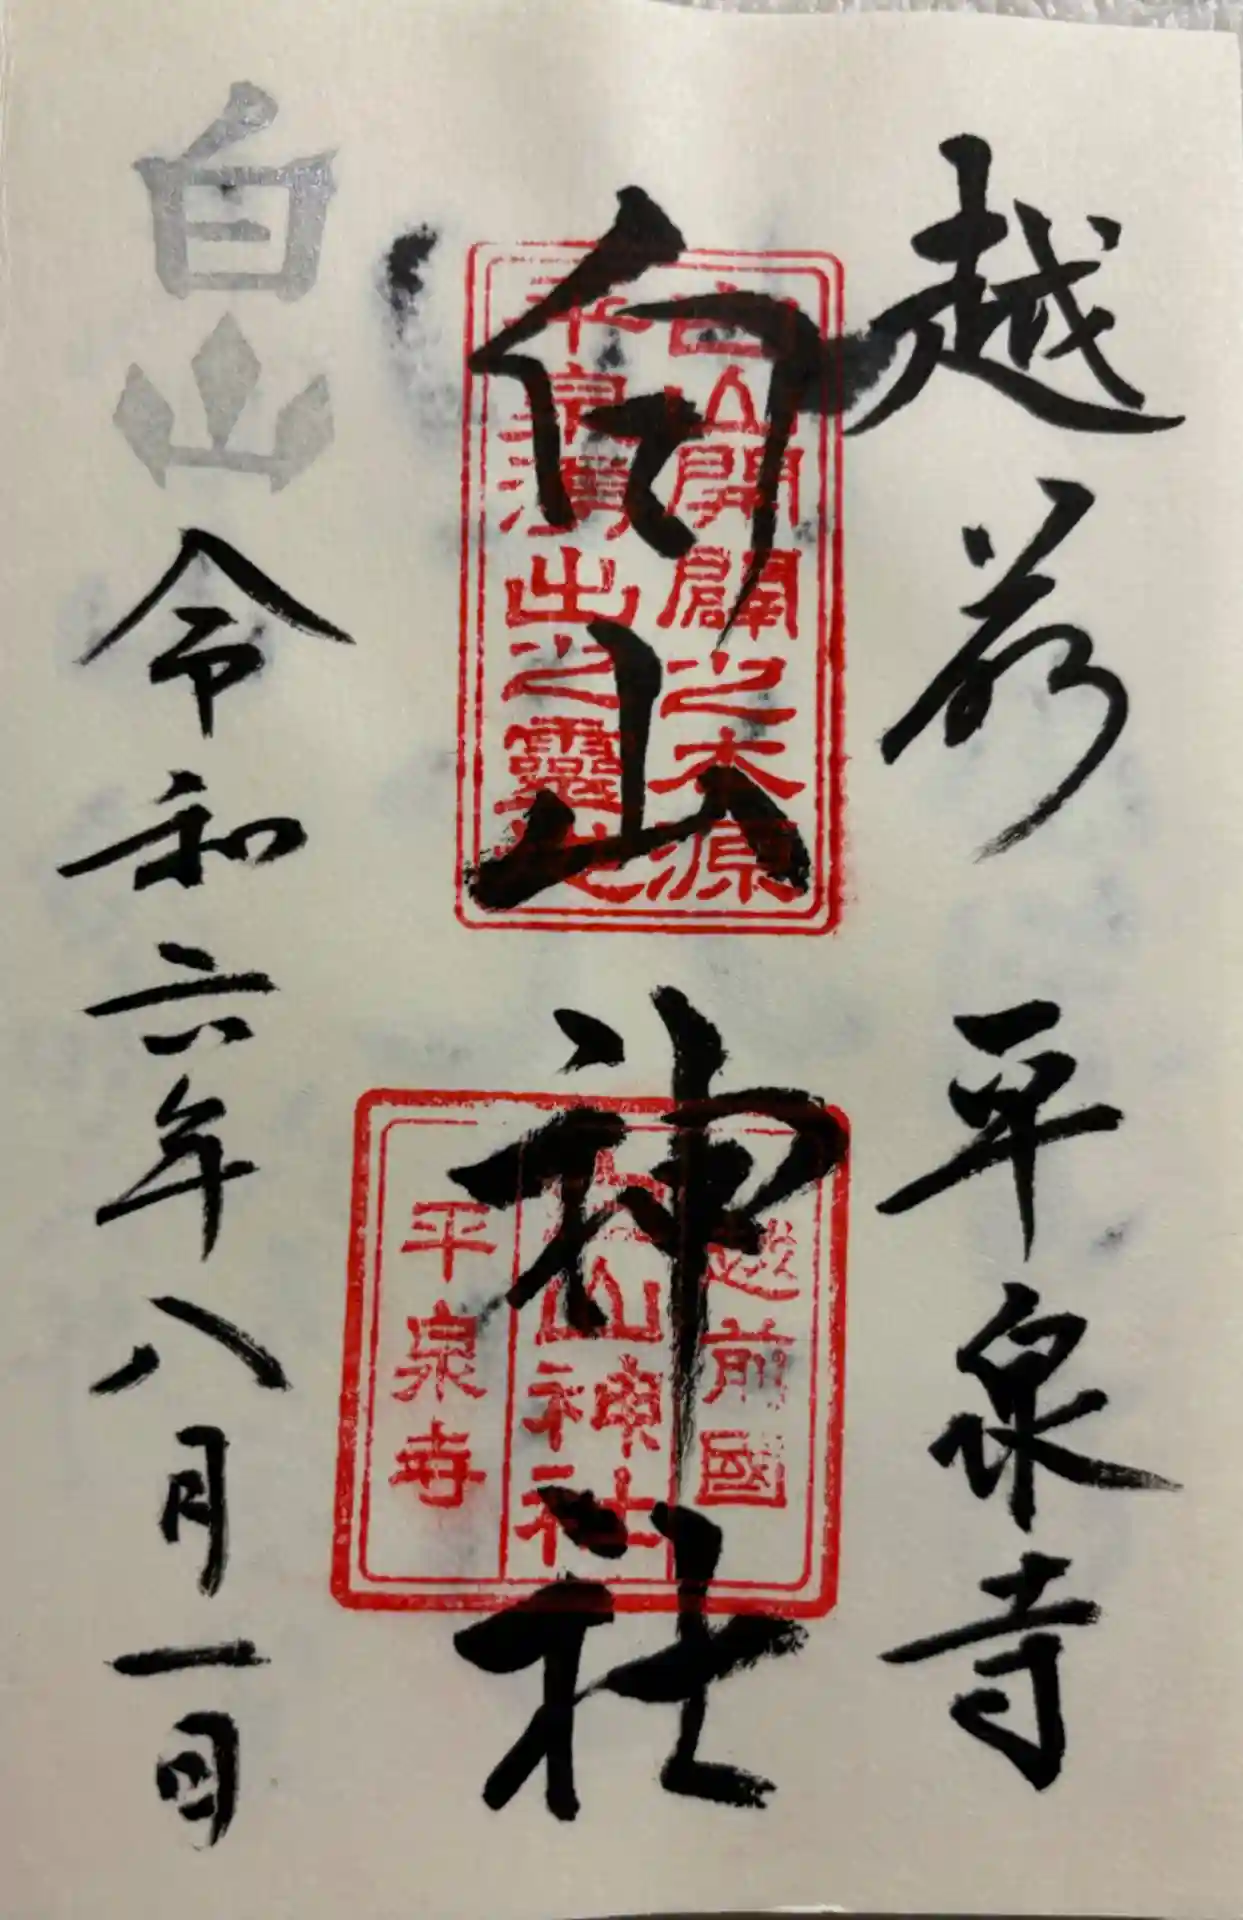 越前 平泉寺
白山神社
白山開闢之本源
平泉湧出之靈地
越前國
白山神社
平泉寺
白山
令和六年八月一日